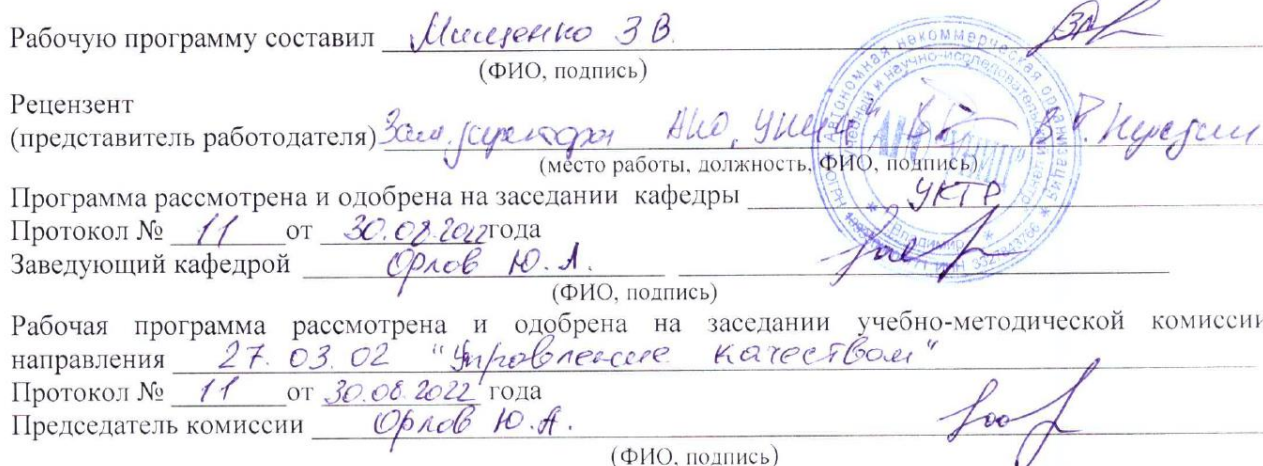 Рабочую программу составил Мищенко З В.
(ФИО, подпись)
Рецензент
(представитель работодателя) Зам. директора АНО
(место работы, должность, ФИО, подпись)
Программа рассмотрена и одобрена на заседании кафедры УКТР
Протокол № 11 от 30.08.2022 года
Заведующий кафедрой Орлов Ю.А.
(ФИО, подпись)
Рабочая программа рассмотрена и одобрена на заседании учебно-методической комиссии
направления 27.03.02 "Управление качеством"
Протокол № 11 от 30.08.2022 года
Председатель комиссии Орлов Ю.А.
(ФИО, подпись)
Автономная некоммерческая организация
Владимир